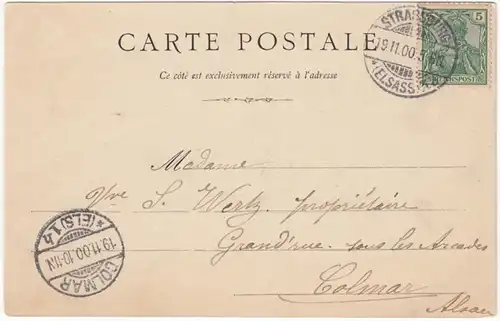 CARTE POSTALE
Ce côté est exclusivement réservé à l'adresse
STRASSBURG
19.11.00.5
* (ELSASS)
5
REICHSPOST
Madame
Vve S. Wertz, propriétaire
Grand'rue sous les Arcades
Colmar
Alsace
COLMAR
19.11.00.10-11N
* (ELS) 1 h